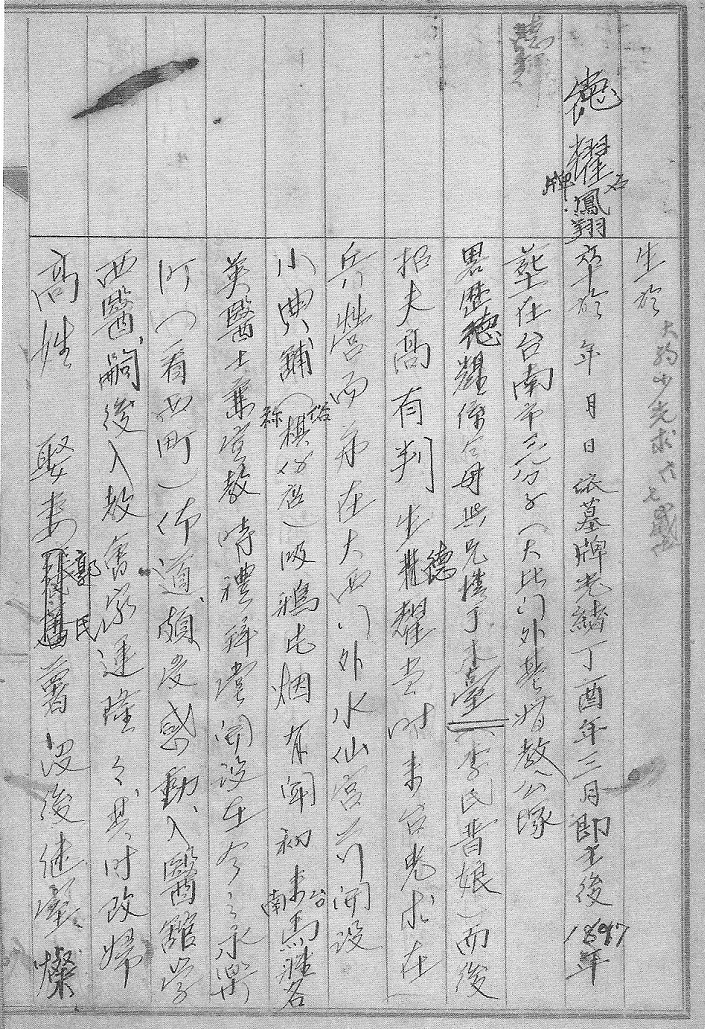 生於 大約少先求六七歲
德耀 名牌鳳翔 卒於 年 月 日 依墓牌光緒丁酉年三月即主後1897年
德輝 葬在台南市三分子（大北門外基督教公塚
畧歷德耀係 母與兄 （李氏昔娘）而後
招夫高有判生德耀當時來台先求在
兵營而弟在大西門外水仙宮前開設
小典舖（俗称棋仔店）吸鴉片烟有聞初來台南馬雅各
英醫士 堂教時禮拜堂開設在今之永樂
町（看西町）佈道頗受感動入醫館学
西醫嗣後入教奮家運隆々其時改婦
高姓 娶妻郭氏 薯没後继室燦